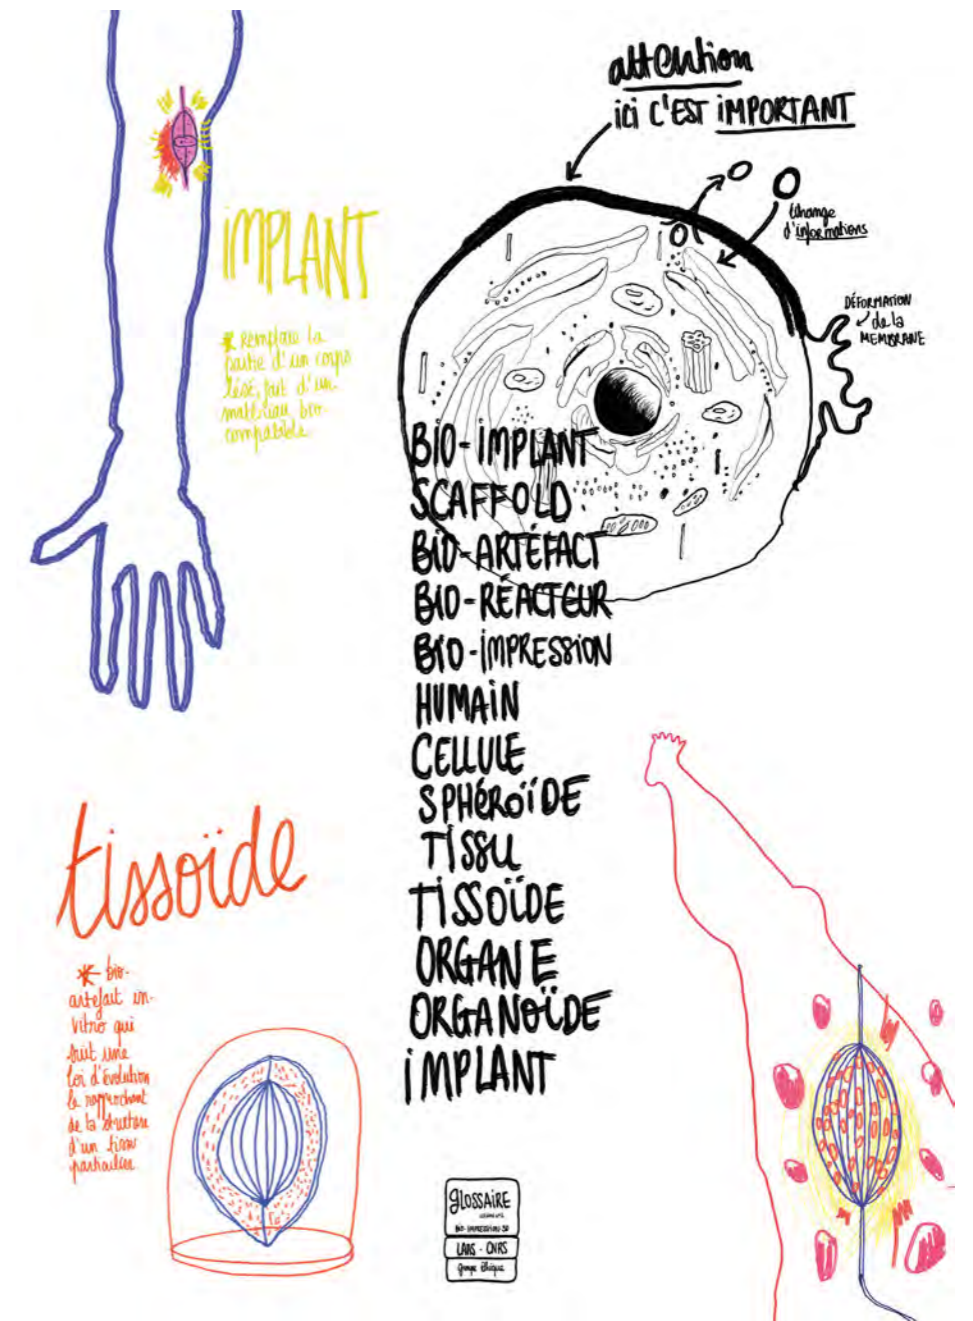 attention
ici C'EST IMPORTANT
échange
d'informations
DÉFORMATION
de la
MEMBRANE
IMPLANT
* Remplace la
partie d'un corps
lésé, fait d'un
matériau bio-
compatible
BIO-IMPLANT
SCAFFOLD
BIO-ARTÉFACT
BIO-RÉACTEUR
BIO-IMPRESSION
HUMAIN
CELLULE
SPHÉROÏDE
TISSU
TISSOÏDE
ORGANE
ORGANOÏDE
IMPLANT
tissoïde
* bio-
artefait in-
vitro qui
suit une
loi d'évolution
le rapprochant
de la structure
d'un tissu
particulier
GLOSSAIRE
BIO-IMPRESSION 3D
LAAS - CNRS
groupe éthique